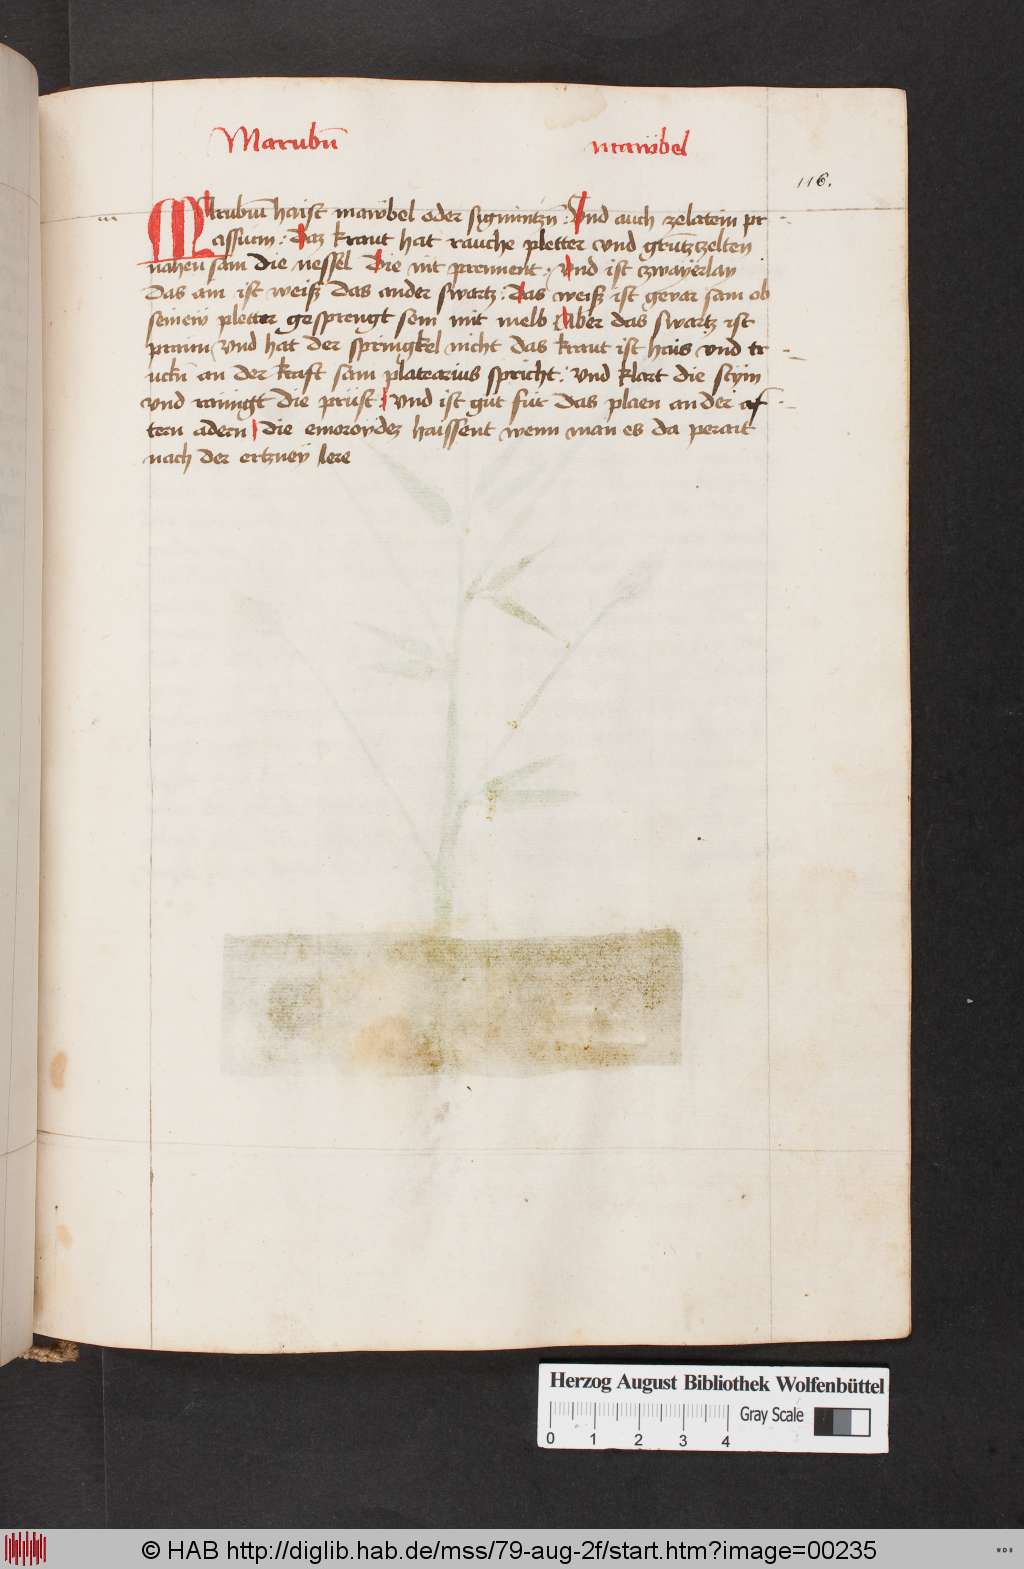 Marubū marobel
116.
Marubiū haist marobel oder sigmintzn̄ Vnd auch zelatein pr
assium Daz kraut hat rauche pletter vnd grūtzzelten
nahen sam die nessel Die nit prennent Vnd ist zwayerlay
Das ain ist weiß das ander swartz Das weiß ist gevar sam ob
seinew pletter gesprengt sein mit melb Aber das swartz ist
praun Vnd hat der springkel nicht das kraut ist hais vnd tr
uckn̄ an der kraft sam platearius spricht Vnd klart die stym
vnd rainigt die prust Vnd ist gut für das plaen an der af
tern adern die emoroydez haissent wenn man es da perait
nach der ertzney lere
Herzog August Bibliothek Wolfenbüttel
Gray Scale
0 1 2 3 4
© HAB http://diglib.hab.de/mss/79-aug-2f/start.htm?image=00235